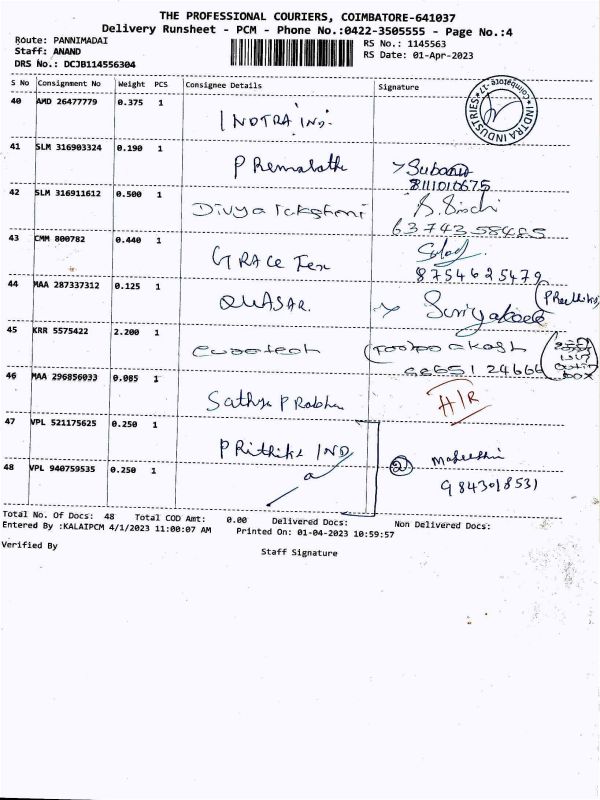 THE PROFESSIONAL COURIERS, COIMBATORE-641037
Delivery Runsheet - PCM - Phone No.:0422-3505555 - Page No.:4
Route: PANNIMADAI
RS No.: 1145563
Staff: ANAND
RS Date: 01-Apr-2023
DRS No.: DCJB114556304
S No Consignment No Weight PCS Consignee Details Signature
INDTRA INDUSTRIES Coimbatore-17
40 AMD 26477779 0.375 1 INDTRA IND.
41 SLM 316903324 0.190 1 PRemalatha
42 SLM 316911612 0.500 1 Divya
43 CMM 800782 0.440 1 GRACE Tex
8754625479
44 MAA 287337312 0.125 1 QUASAR.
45 KRR 5575422 2.200 1 akash
46 MAA 296856033 0.085 1 Sathya PRabha H/R
47 VPL 521175625 0.250 1 PRithika IND
48 VPL 940759535 0.250 1 2
9843018531
Total No. Of Docs: 48 Total COD Amt: 0.00 Delivered Docs: Non Delivered Docs:
Entered By :KALAIPCM 4/1/2023 11:00:07 AM Printed On: 01-04-2023 10:59:57
Verified By
Staff Signature